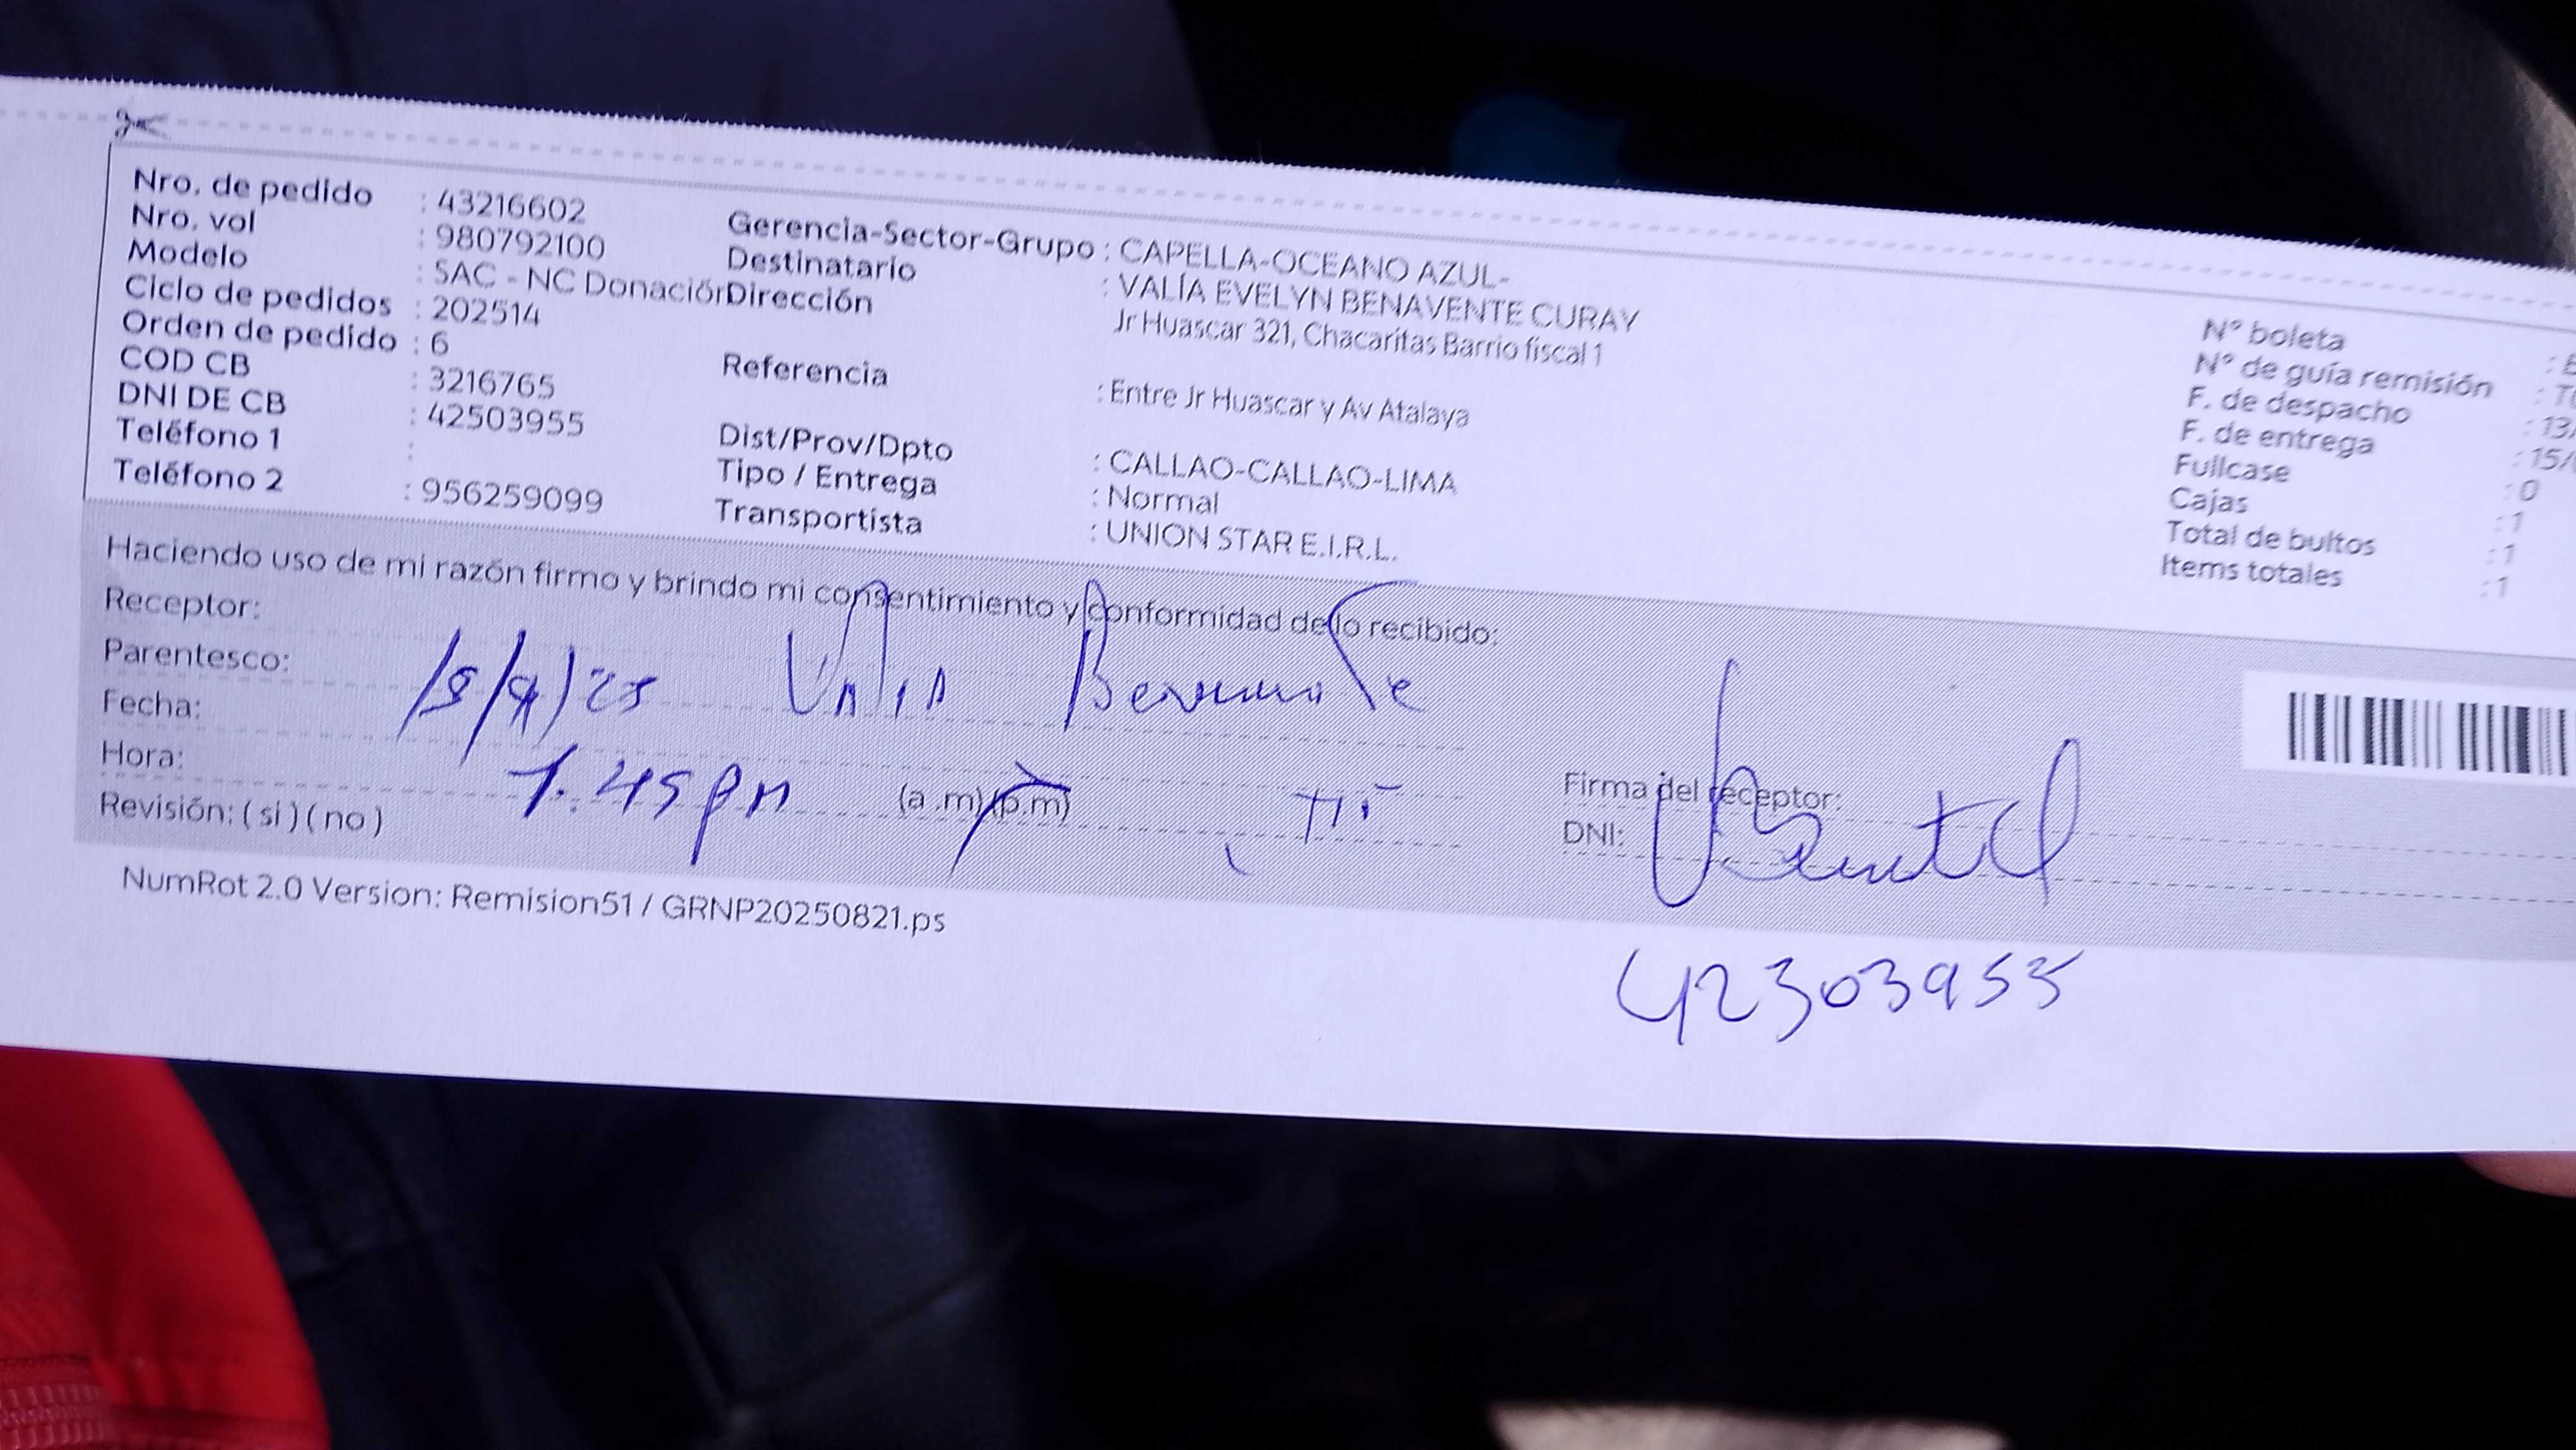 Nro. de pedido : 43216602
Nro. vol : 980792100
Modelo : SAC - NC Donación
Ciclo de pedidos : 202514
Orden de pedido : 6
COD CB : 3216765
DNI DE CB : 42503955
Teléfono 1 :
Teléfono 2 : 956259099
Gerencia-Sector-Grupo : CAPELLA-OCEANO AZUL-
Destinatario : VALÍA EVELYN BENAVENTE CURAY
Dirección Jr Huascar 321, Chacaritas Barrio fiscal 1
Referencia : Entre Jr Huascar y Av Atalaya
Dist/Prov/Dpto : CALLAO-CALLAO-LIMA
Tipo / Entrega : Normal
Transportista : UNION STAR E.I.R.L.
N° boleta :
N° de guía remisión :
F. de despacho : 13/
F. de entrega : 15/
Fullcase : 0
Cajas : 1
Total de bultos : 1
Items totales : 1
Haciendo uso de mi razón firmo y brindo mi consentimiento y conformidad de lo recibido:
Receptor:
Parentesco:
Fecha: 15/9/25 Valia Benavente
Hora: 1:45 pm (a .m) (p.m)
Revisión: ( si ) ( no )
Firma del receptor:
DNI:
42303955
NumRot 2.0 Version: Remision51 / GRNP20250821.ps